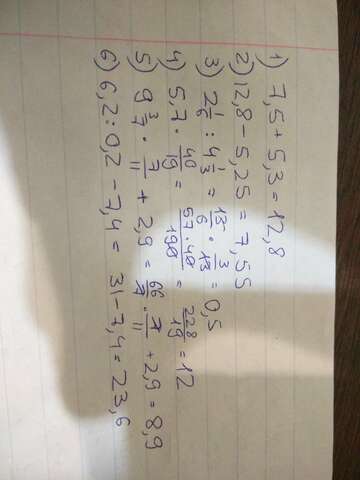 1) 7,5 + 5,3 = 12,8
2) 12,8 - 5,25 = 7,55
3) 2 1/6 : 4 1/3 = 13/6 · 3/13 = 0,5
4) 5,7 · 40/19 = 57·40/190 = 228/19 = 12
5) 9 3/7 · 7/11 + 2,9 = 66/7 · 7/11 + 2,9 = 8,9
6) 6,2 : 0,2 - 7,4 = 31 - 7,4 = 23,6